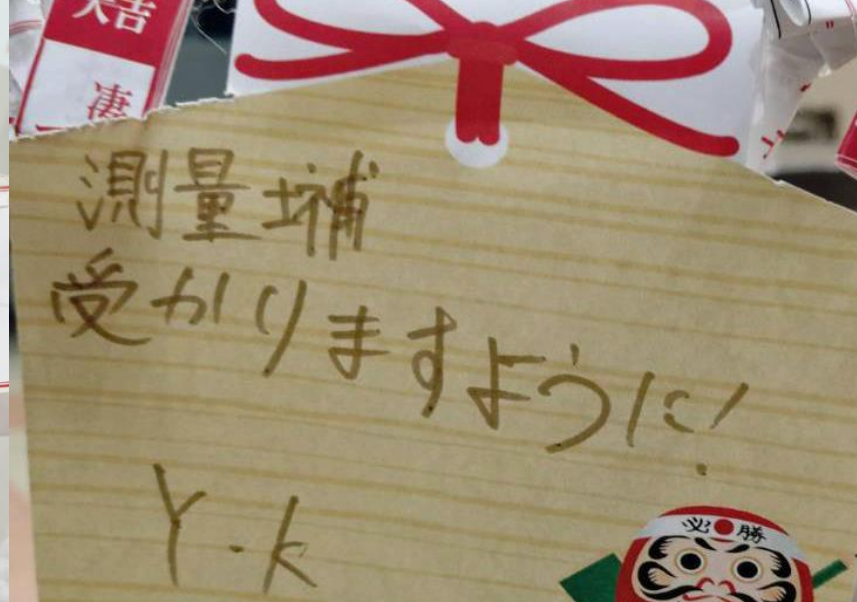 大吉
測量士補
受かりますように!
Y.K
必勝